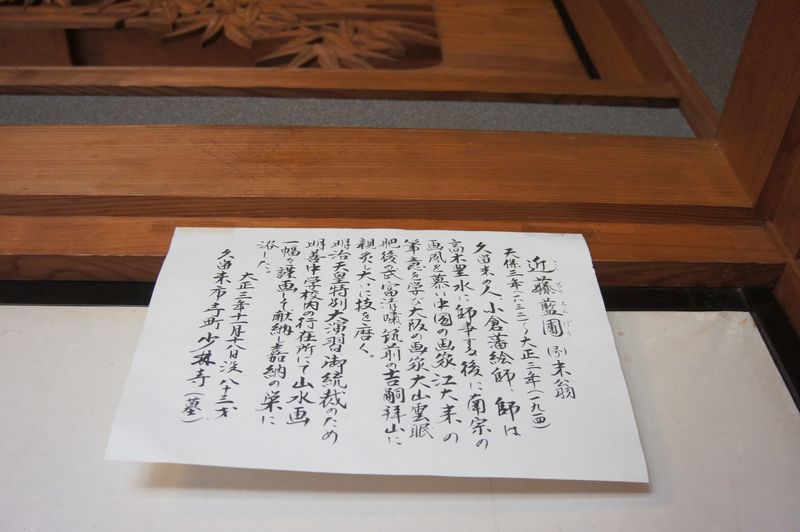 近藤藍圃 (別) 末翁
天保三年(一八三二)〜大正三年(一九一四)
久留米の人 小倉藩絵師、師は
高木豊水に師事する 後に南宗の
画風を慕い中国の画家 江大来の
筆意を学び大阪の画家大山雲眠
肥後の武富清嘯 筑前の吉嗣拝山に
親炙し大いに技を磨く。
明治天皇特別大演習御統裁のため
明善中学校内の行在所にて山水画
一幅を謹画して献納し嘉納の栄に
浴した。
大正三年十一月十八日没 八十三才
久留米市寺町 少林寺(墓)